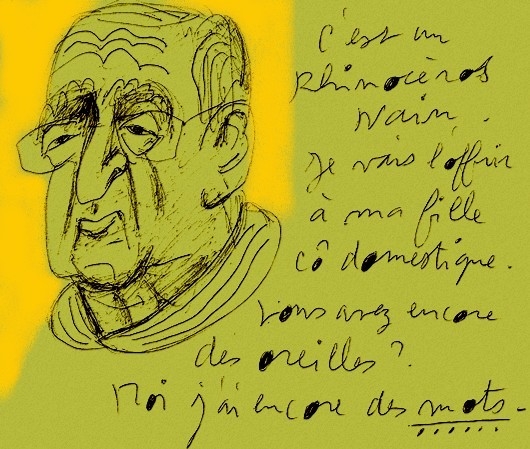 C'est un
Rhinocéros
Nain.
Je vais l'offrir
à ma fille
cô domestique.
Vous avez encore
des oreilles ?
Moi j'ai encore des mots.